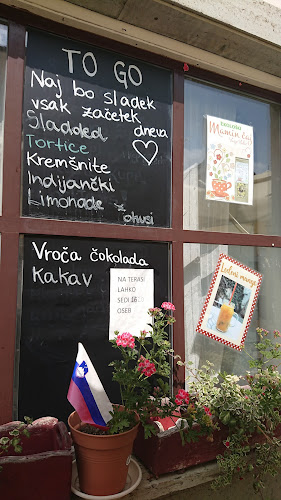 TO GO
Naj bo sladek
vsak začetek
dneva
Sladoled
Tortice
Kremšnite
Indijančki
Limonade z okusi
Vroča čokolada
Kakav
NA TERASI
LAHKO
SEDI 16
OSEB
Mamin čaj
Ledeni mango